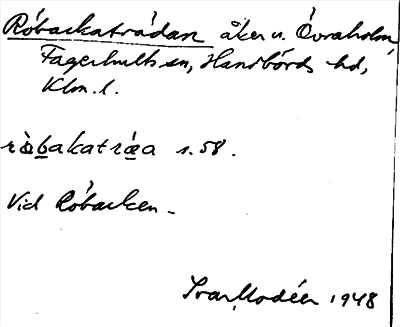 Róbackatrádan åker u. Övraholm,
Fagerhults sn, Handbörds hd,
Klm. l.
ròbakatræa s. 58.
Vid Róbacken.
Ivar Modéer 1948